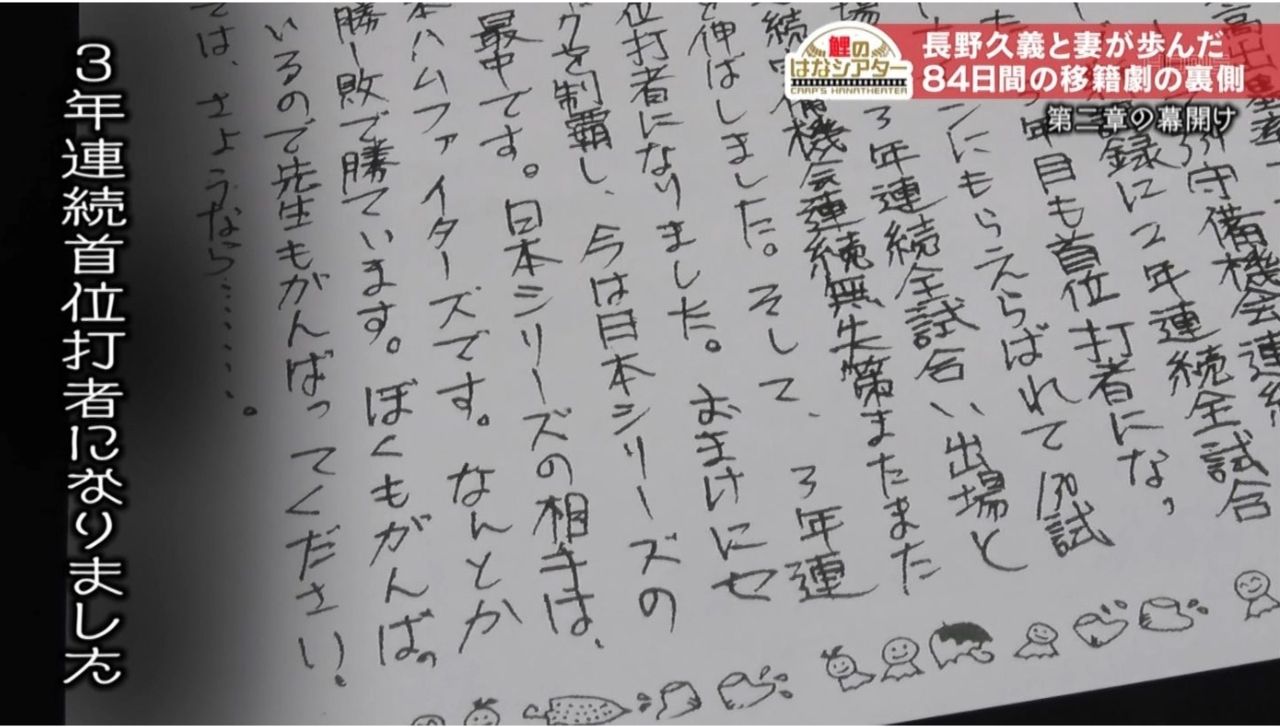 鯉の
はなシアター
CARP'S HANATHEATER
長野久義と妻が歩んだ
84日間の移籍劇の裏側
第二章の幕開け
守備機会連続
録に2年連続全試合
年目も首位打者になっ
にもらえらばれて130試
3年連続全試合い出場と
備機会連続無失策またまた
を伸ばしました。そして、3年連
位打者になりました。おまけにセ
クを制覇し、今は日本シリーズの
最中です。日本シリーズの相手は、
本ハムファイターズです。なんとか
勝一敗で勝ています。ぼくもがんばっ
いるので先生もがんばってください。
では、さようなら……。
3年連続首位打者になりました